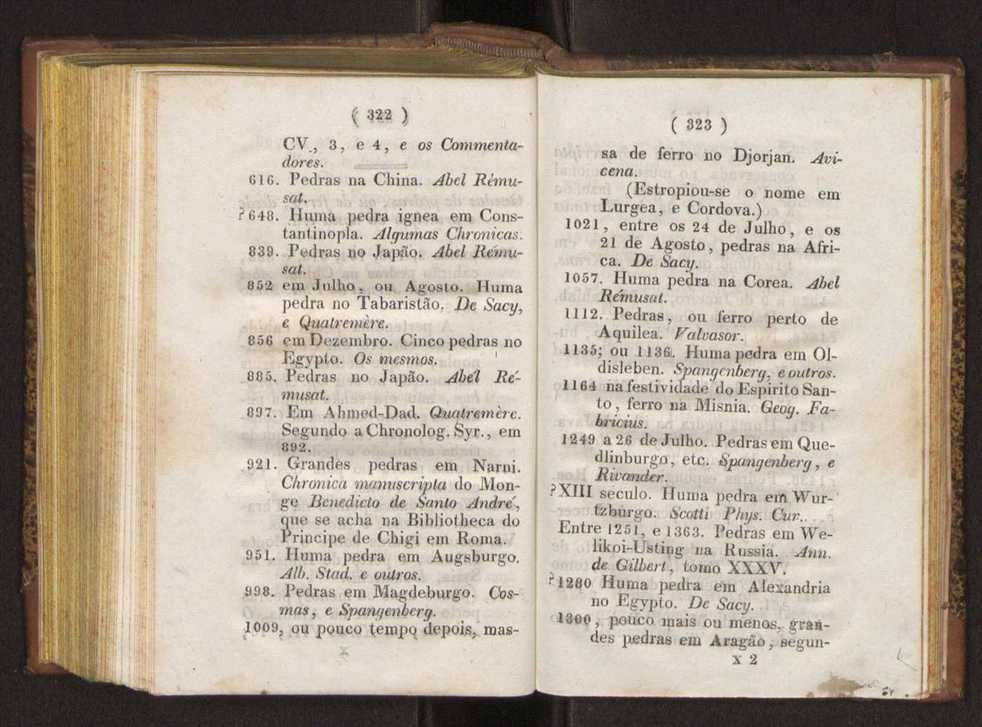 ( 322 )
CV., 3, e 4, e os Commenta-
dores.
616. Pedras na China. Abel Rému-
sat.
? 648. Huma pedra ignea em Cons-
tantinopla. Algumas Chronicas.
839. Pedras no Japão. Abel Rému-
sat.
852 em Julho, ou Agosto. Huma
pedra no Tabaristão. De Sacy,
e Quatremère.
856 em Dezembro. Cinco pedras no
Egypto. Os mesmos.
885. Pedras no Japão. Abel Ré-
musat.
897. Em Ahmed-Dad. Quatremère.
Segundo a Chronolog. Syr., em
892.
921. Grandes pedras em Narni.
Chronica manuscripta do Mon-
ge Benedicto de Santo André,
que se acha na Bibliotheca do
Principe de Chigi em Roma.
951. Huma pedra em Augsburgo.
Alb. Stad. e outros.
998. Pedras em Magdeburgo. Cos-
mas, e Spangenberg.
1009, ou pouco tempo depois, mas-
x
( 323 )
sa de ferro no Djorjan. Avi-
cena.
(Estropiou-se o nome em
Lurgea, e Cordova.)
1021, entre os 24 de Julho, e os
21 de Agosto, pedras na Afri-
ca. De Sacy.
1057. Huma pedra na Corea. Abel
Rémusat.
1112. Pedras, ou ferro perto de
Aquilea. Valvasor.
1135; ou 1136. Huma pedra em Ol-
disleben. Spangenberg, e outros.
1164 na festividade do Espirito San-
to, ferro na Misnia. Geog. Fa-
bricius.
1249 a 26 de Julho. Pedras em Que-
dlinburgo, etc. Spangenberg, e
Rivander.
? XIII seculo. Huma pedra em Wur-
tzburgo. Scotti Phys. Cur..
Entre 1251, e 1363. Pedras em We-
likoi-Usting na Russia. Ann.
de Gilbert, tomo XXXV.
? 1280 Huma pedra em Alexandria
no Egypto. De Sacy.
1300, pouco mais ou menos, gran-
des pedras em Aragão, segun-
x 2